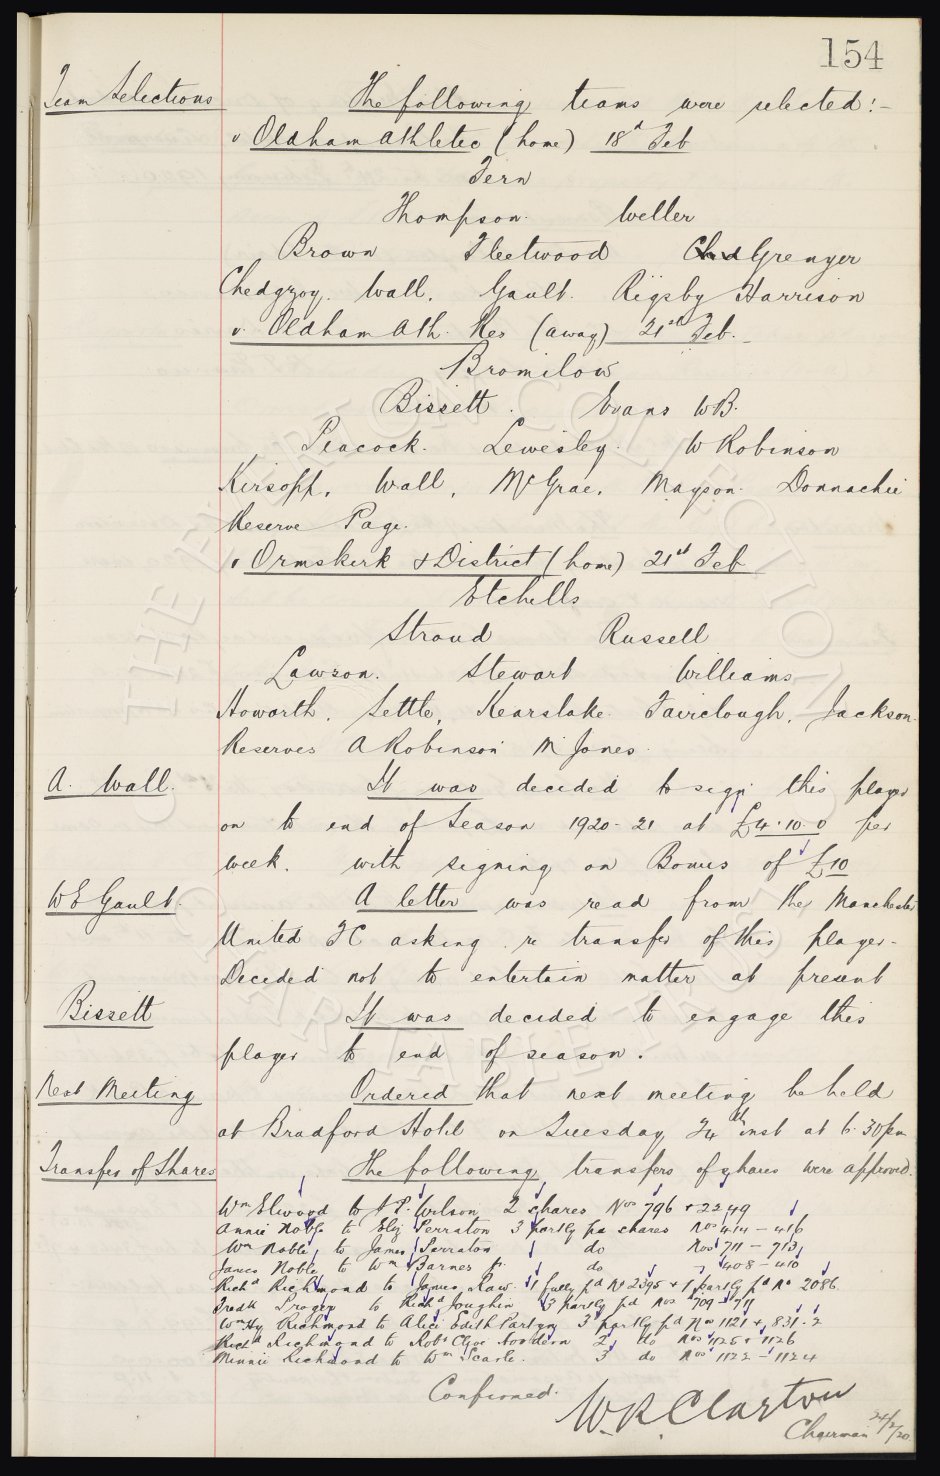 154
Team Selections The following teams were selected:-
v Oldham Athletic (home) 18th Feb
Fern
Thompson. Weller
Brown Fleetwood Grenyer
Chedgzoy. Wall. Gault. Rigsby Harrison
v. Oldham Ath. Res (away) 21st Feb.
Bromilow
Bissett. Evans WB.
Peacock. Lewesley. W Robinson
Kirsopp. Wall, McGrae. Mayson. Donnachie
Reserve Page.
v Ormskirk & District (home) 21st Feb
Etchells
Stroud Russell
Lawson. Stewart Williams
Howarth. Settle, Kearslake. Fairclough. Jackson.
Reserves A Robinson M Jones.
A. Wall. It was decided to sign this player
on to end of Season 1920-21 at £4.10.0 per
week. with signing on Bonus of £10
WE Gault. A letter was read from the Manchester
United FC asking re transfer of this player-
Decided not to entertain matter at present
Bissett It was decided to engage this
player to end of season.
Next Meeting Ordered that next meeting be held
at Bradford Hotel on Tuesday 24th inst at 6.30pm
Transfer of Shares The following transfers of shares were approved.
Wm Elwood to A P. Wilson 2 shares Nos 796 + 2249
Annie Noble to Eliz Perraton 3 partly pd shares Nos 414 - 416
Wm Noble to James Perraton do Nos 711 - 713
James Noble to Wm Barnes do 408 - 410
Richd Richmond to James Haw. 1 fully pd No 2395 + 1 partly pd No 2086
Fredk to Richd Joughin 3 partly pd Nos 709 - 711
Wm Hy Richmond to Alice Edith Partgn 3 partly pd Nos 1121 + 831-2
Richd Richmond to Robt Clive 2 do Nos 1125 + 1126
Minnie Richmond to Wm Searle. 3 do Nos 1122 - 1124
Confirmed. W.R Clayton
Chairman 24/2/20
THE EVERTON COLLECTION
CHARITABLE TRUST